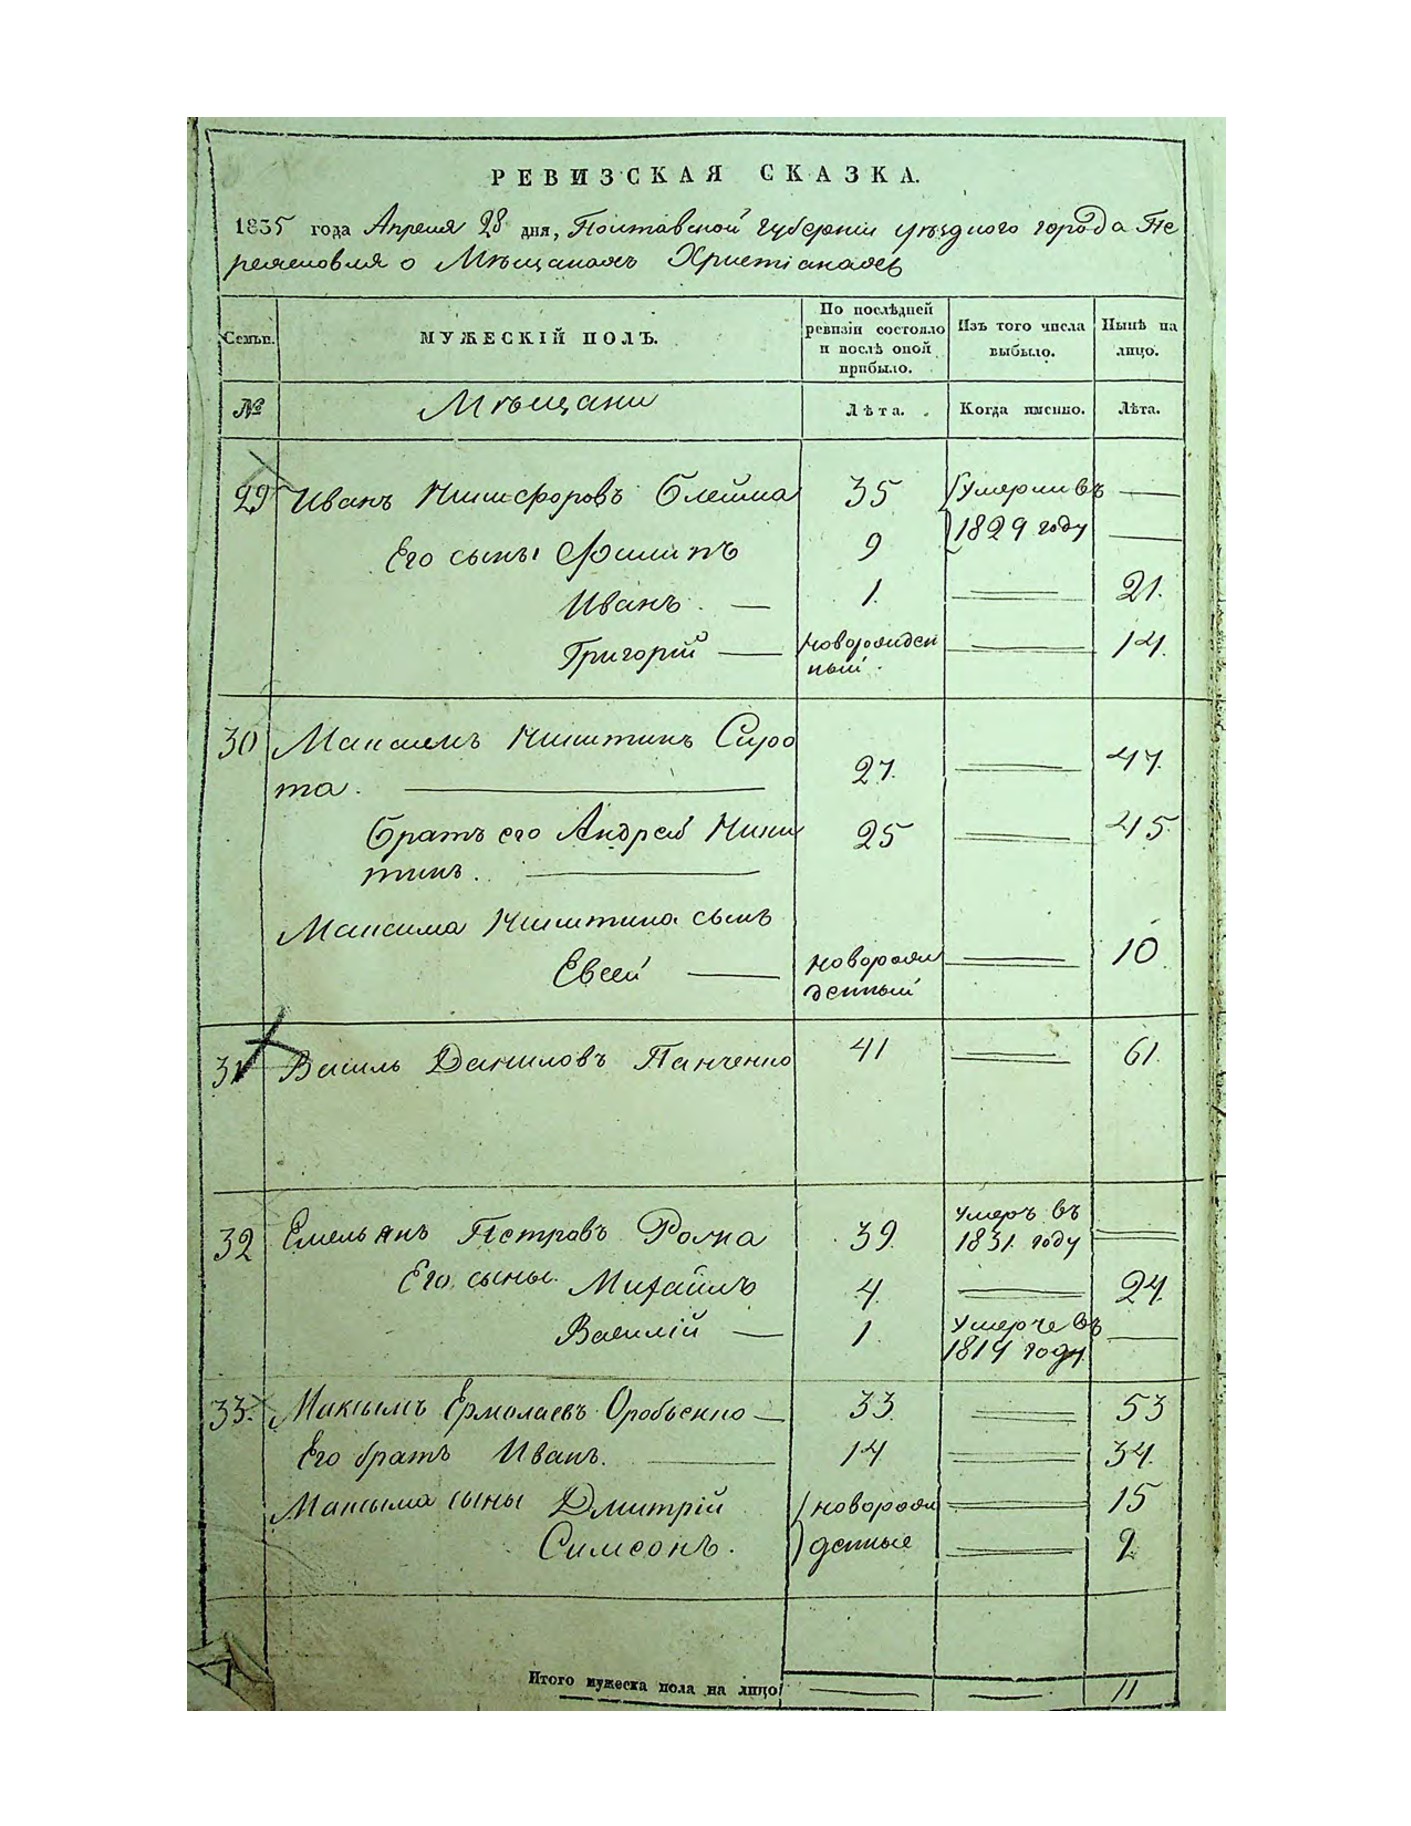 РЕВИЗСКАЯ СКАЗКА.
1835 года Апреля 28 дня, Полтавской Губерніи уѣзднаго города Пе
реяславля о Мѣщанахъ Христіанахъ
Семьи.
МУЖЕСКІЙ ПОЛЪ.
По послѣдней ревизіи состояло и послѣ оной прибыло.
Изъ того числа выбыло.
Нынѣ на лицо.
№ Мѣщани Лѣта. Когда именно. Лѣта.
29 Иванъ Никифоровъ 35 Умерли въ —
Его сыны Филипъ 9 1829 году —
Иванъ. — 1. — 21.
Григорій — новорожден — 14.
ный.
30 Максимъ Никитинъ Сиро
та. — 27. — 47.
Братъ его Андрей Ники 25 — 45.
тинъ. —
Максима Никитина сынъ
Евсей — новорож — 10.
денный
31 Василь Даниловъ Панченко 41 — 61.
32 Емельянъ Петровъ Рожа 39. умеръ въ —
1831. году
Его сыны. Михайлъ 4. — 24.
Василій — 1. Умерше въ —
1819 году
33. Максымъ Ермолаевъ Оробъенко — 33. — 53
Его братъ Иванъ. — 14 — 34.
Максыма сыны Дмитрій новорож — 15
Симеонъ. денные — 9.
Итого мужеска пола на лицо — — 11